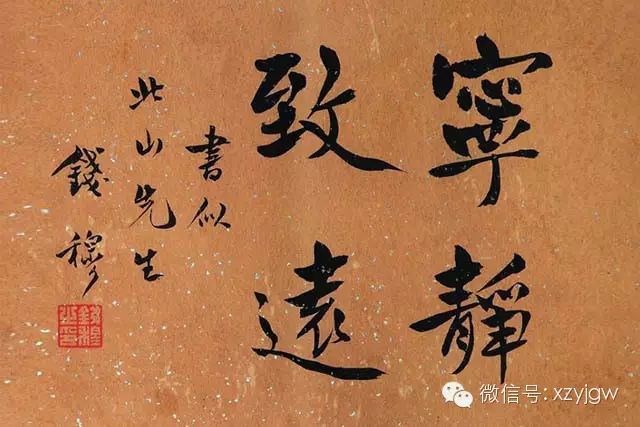 寧靜
致遠
書似
此山先生
錢穆
微信号: xzyjgw